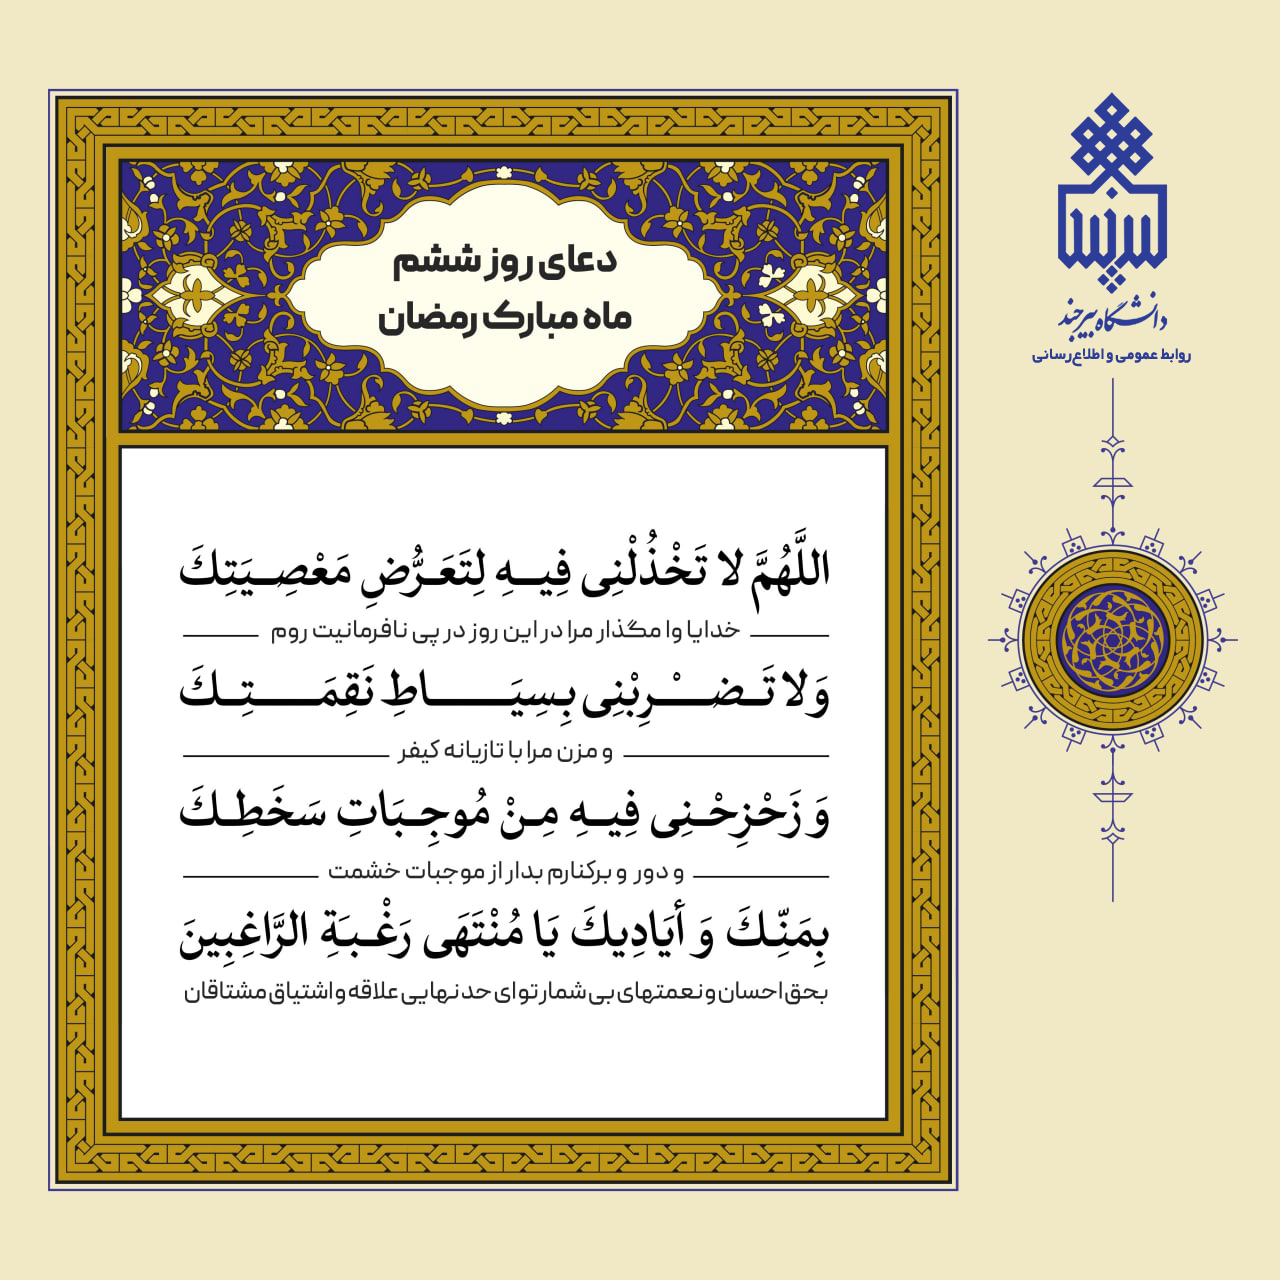 دعای روز ششم
ماه مبارک رمضان
اللَّهُمَّ لا تَخْذُلْنِی فِیـهِ لِتَعَـرُّضِ مَعْصِـیَتِكَ
خدایا وا مگذار مرا در این روز در پی نافرمانیت روم
وَلا تَـضْـرِبْنِی بِـسِیَـاطِ نَقِمَـتِـكَ
و مزن مرا با تازیانه کیفر
وَ زَحْزِحْـنِی فِیـهِ مِـنْ مُوجِـبَاتِ سَخَطِـكَ
و دور و برکنارم بدار از موجبات خشمت
بِمَنِّـكَ وَ أَیَادِیكَ یَا مُنْتَهَی رَغْـبَةِ الرَّاغِبِینَ
بحق احسان و نعمتهای بی شمار تو ای حد نهایی علاقه و اشتیاق مشتاقان
بیرجند
دانشگاه بیرجند
روابط عمومی و اطلاع‌رسانی